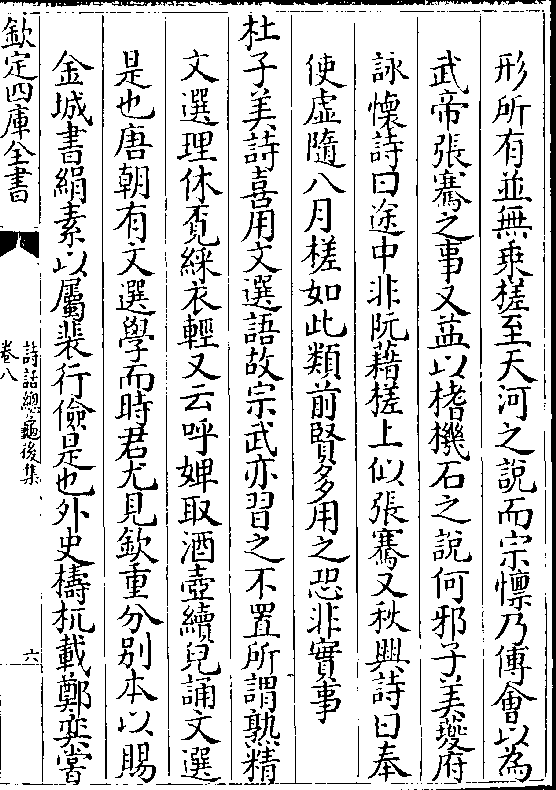 形所有並無乘槎至天河之說而宗懍乃傅會以為
武帝張騫之事又益以榰機石之說何邪子美夔府
詠懷詩曰途中非阮藉槎上似張騫又秋興詩曰奉
使虛隨八月槎如此類前賢多用之恐非實事
杜子美詩喜用文選語故宗武亦習之不置所謂熟精
文選理休覓綵衣輕又云呼婢取酒壺續兒誦文選
是也唐朝有文選學而時君尤見欽重分別本以賜
金城書絹素以屬裴行儉是也外史檮杌載鄭奕嘗
欽定四庫全書
詩話總龜後集
卷八
六